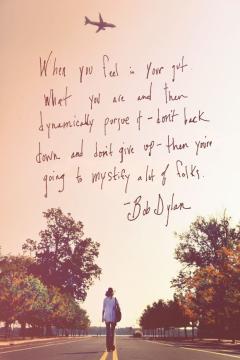 When you feel in your gut
what you are and then
dynamically pursue it - don't back
down and don't give up - then you're
going to mystify a lot of folks.
- Bob Dylan